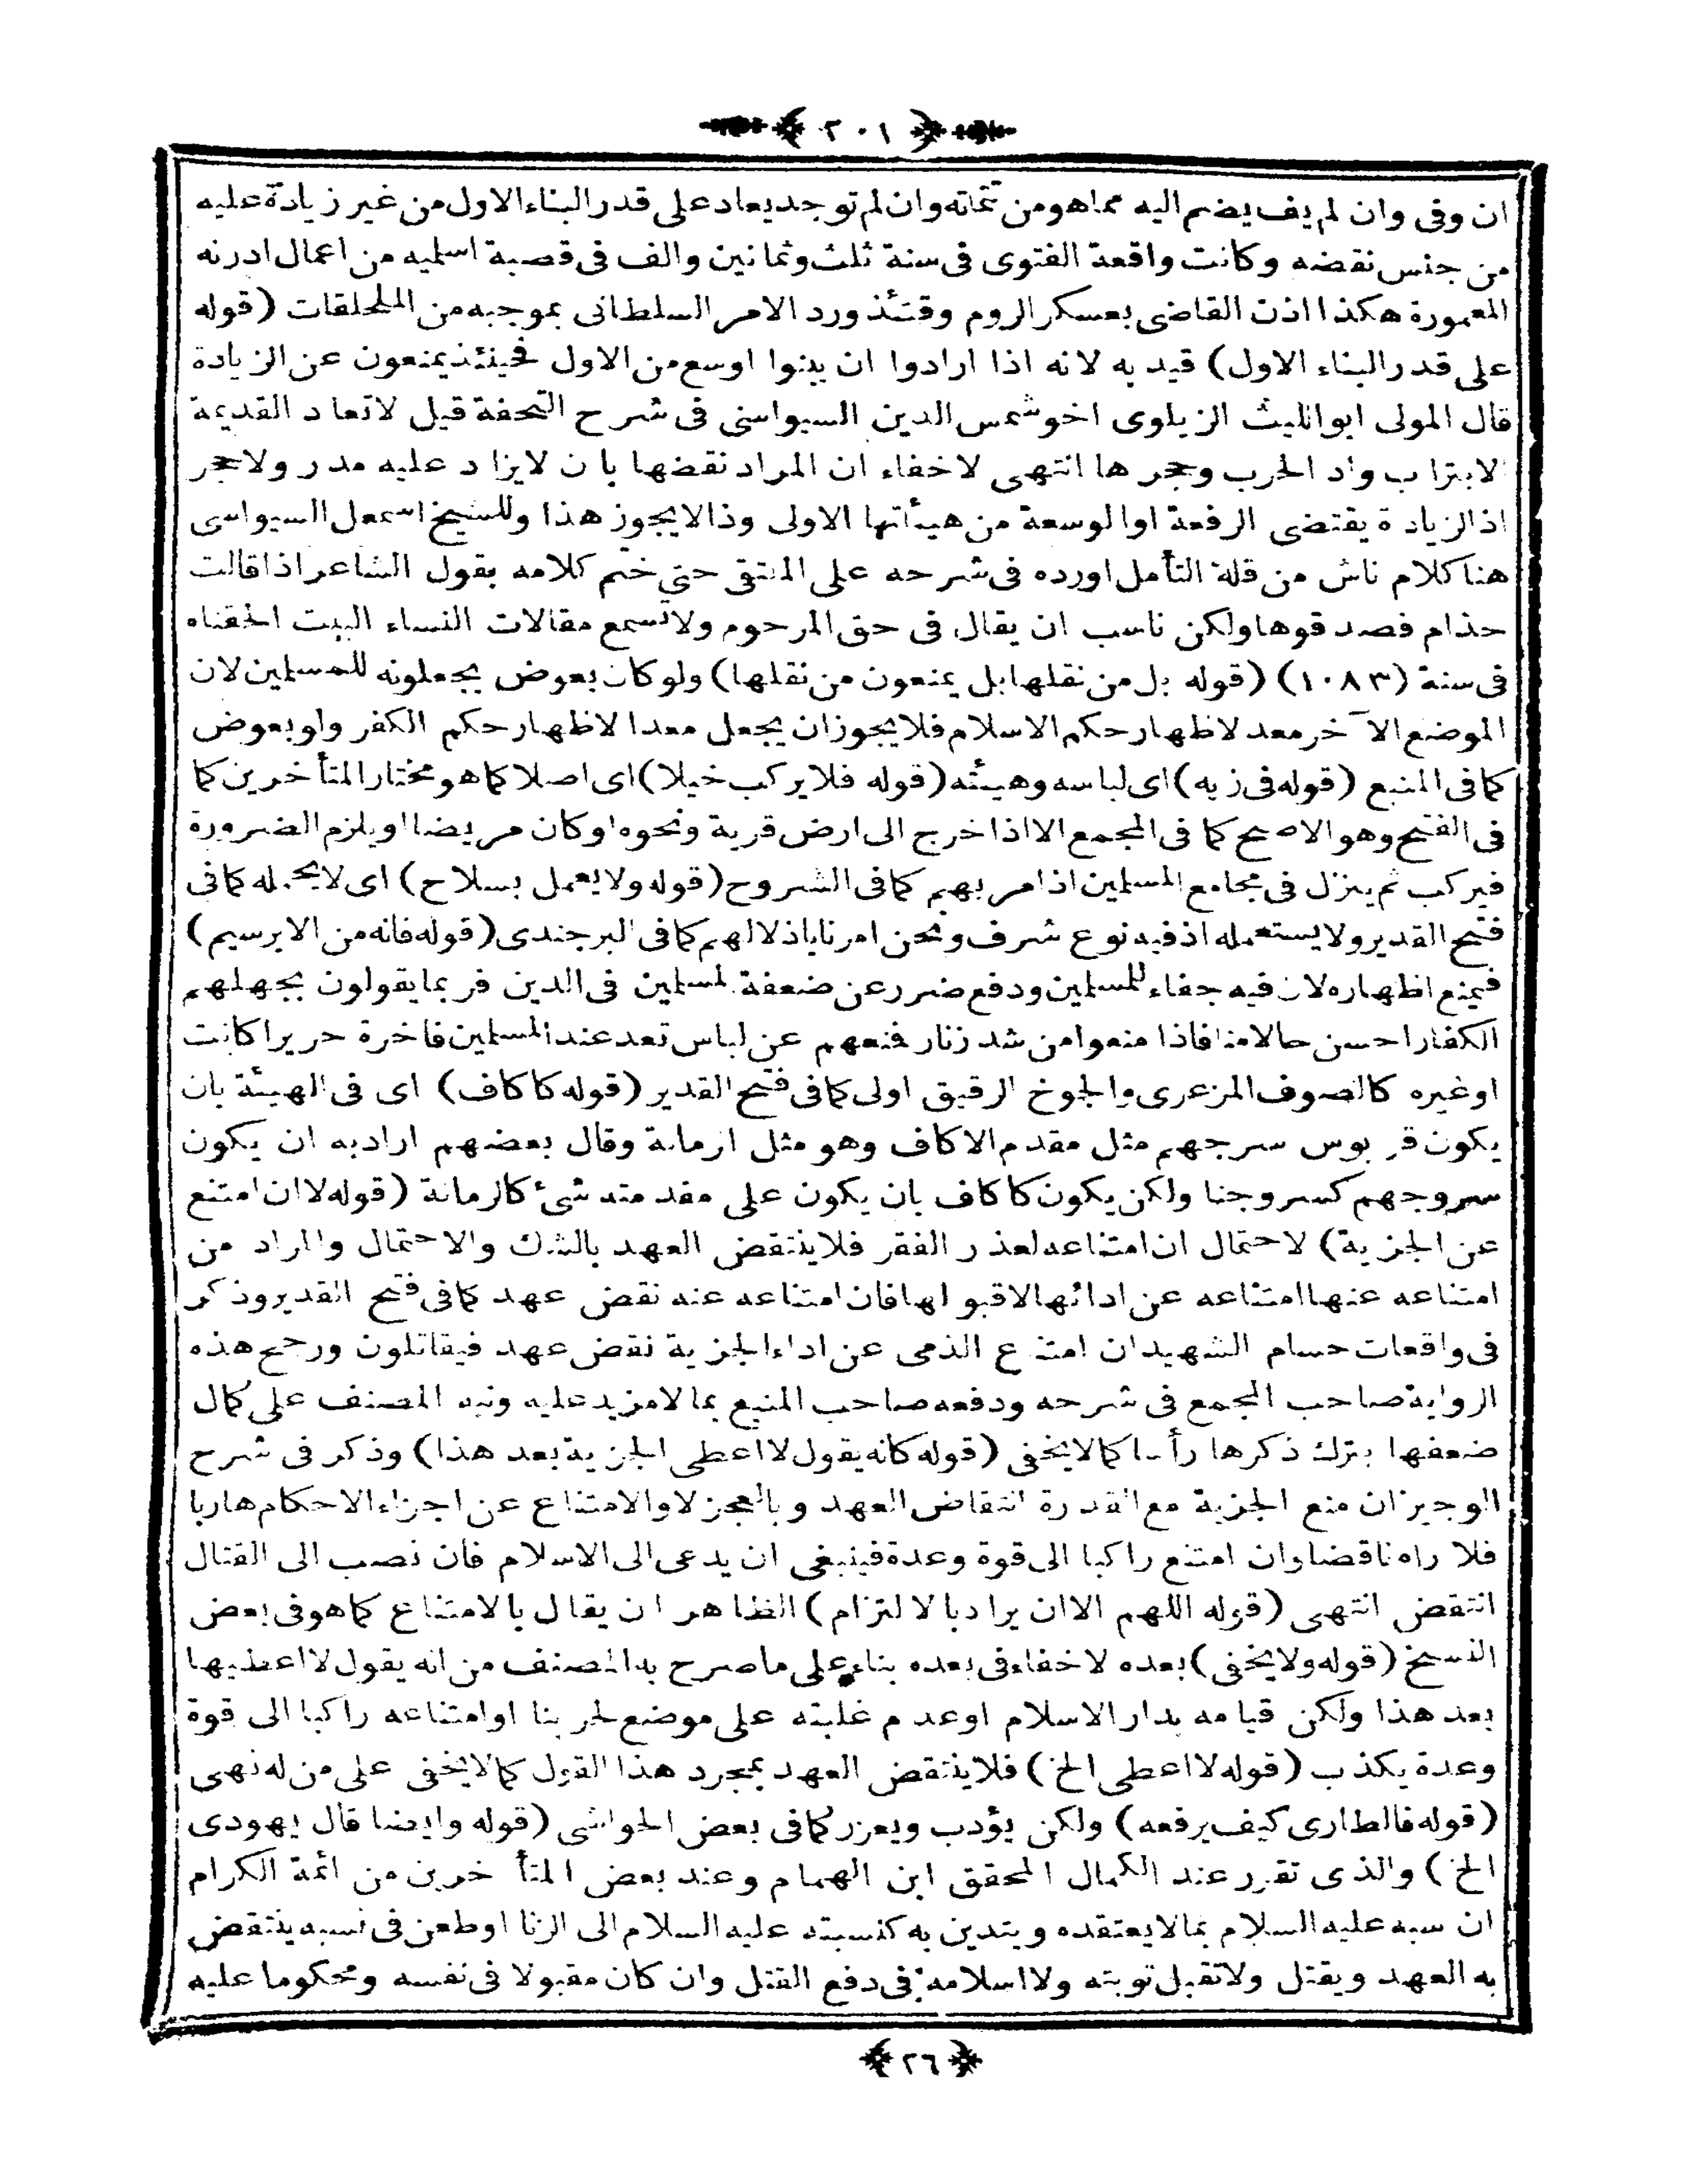 ﴿ ٢٠١ ﴾
ان وفى وان لم يف يضم اليه مما هو من تتماته وان لم توجد يعاد على قدر البناء الاول من غير زيادة عليه
من جنس نقضه وكانت واقعة الفتوى فى سنة ثلث وثمانين والف فى قصبة اسلميه من اعمال ادرنه
المعمورة هكذا اذن القاضى بعسكر الروم وقتئذ ورد الامر السلطانى بموجبه من الملحلقات (قوله
على قدر البناء الاول) قيد به لانه اذا ارادوا ان يبنوا اوسع من الاول فحينئذ يمنعون عن الزيادة
قال المولى ابوالليث الزيلوى اخو شمس الدين السيواسى فى شرح التحفة قيل لاتعاد القديمة
الابتراب واد الحرب وحجرها انتهى لاخفاء ان المراد نقضها بان لايزاد عليه مدر ولاحجر
اذ الزيادة يقتضى الرفعة او الوسعة من هيئاتها الاولى وذا لايجوز هذا وللشيخ اسمعل السيواسى
هنا كلام ناش من قلة التأمل اورده فى شرحه على الملتقى حتى ختم كلامه بقول الشاعر اذا قالت
حذام فصدقوها ولكن ناسب ان يقال فى حق المرحوم ولاتسمع مقالات النساء البيت الحقناه
فى سنة (١٠٨٣) (قوله بل من نقلها بل يمنعون من نقلها) ولو كان بعوض يجعلونه للمسلمين لان
الموضع الآخر معد لاظهار حكم الاسلام فلايجوز ان يجعل معدا لاظهار حكم الكفر ولو بعوض
كما فى المنبع (قوله فى زيه) اى لباسه وهيئته (قوله فلا يركب خيلا) اى اصلا كما هو مختار المتأخرين كما
فى الفتح وهو الاصح كما فى المجمع الا اذا خرج الى ارض قرية ونحوه او كان مريضا او يلزم الضرورة
فيركب ثم ينزل فى مجامع المسلمين اذا مر بهم كما فى الشروح (قوله ولا يعمل بسلاح) اى لايحمله كما فى
فتح القدير ولا يستعمله اذ فيه نوع شرف ونحن امرنا باذلالهم كما فى البرجندى (قوله فانه من الابرسيم)
فيمنع اظهاره لان فيه جفاء للمسلمين ودفع ضرر عن ضعفة المسلمين فى الدين فربما يقولون بجهلهم
الكفار احسن حالا منا فاذا منعوا من شد زنار فمنعهم عن لباس تعد عند المسلمين فاخرة حريرا كانت
او غيره كالصوف المزعرى والجوخ الرقيق اولى كما فى فتح القدير (قوله كاكاف) اى فى الهيئة بان
يكون قربوس سرجهم مثل مقدم الاكاف وهو مثل الرمانة وقال بعضهم اراد به ان يكون
سروجهم كسروجنا ولكن يكون كاكاف بان يكون على مقدمته شئ كالرمانة (قوله لا ان امتنع
عن الجزية) لاحتمال ان امتناعه لعذر الفقر فلا ينتقض العهد بالشك والاحتمال والمراد من
امتناعه عنها امتناعه عن ادائها لاقبولها فان امتناعه عنه نقض عهد كما فى فتح القدير وذكر
فى واقعات حسام الشهيد ان امتنع الذمى عن اداء الجزية نقض عهد فيقاتلون ورجح هذه
الرواية صاحب المجمع فى شرحه ودفعه صاحب المنبع بما لامزيد عليه ونبه المصنف على كمال
ضعفها بترك ذكرها رأسا كما لايخفى (قوله كانه يقول لا اعطى الجزية بعد هذا) وذكر فى شرح
الوجيز ان منع الجزية مع القدرة انتقاض العهد وبالعجز لا والامتناع عن اجراء الاحكام هاربا
فلا راه ناقضا وان امتنع راكبا الى قوة وعدة فينبغى ان يدعى الى الاسلام فان نصب الى القتال
انتقض انتهى (قوله اللهم الا ان يراد بالالتزام) الظاهر ان يقال بالامتناع كما هو فى بعض
النسخ (قوله ولايخفى) بعده لاخفاء فى بعده بناء على ماصرح به المصنف من انه يقول لا اعطيها
بعد هذا ولكن قيامه بدار الاسلام او عدم غلبته على موضع لحربنا او امتناعه راكبا الى قوة
وعدة يكذب (قوله لا اعطى الخ) فلا ينتقض العهد بمجرد هذا القول كما لايخفى على من له نهى
(قوله فالطارى كيف يرفعه) ولكن يؤدب ويعزر كما فى بعض الحواشى (قوله وايضا قال يهودى
الخ) والذى تقرر عند الكمال المحقق ابن الهمام وعند بعض المتأخرين من ائمة الكرام
ان سبه عليه السلام بما لايعتقده ويتدين به كنسبته عليه السلام الى الزنا او طعن فى نسبه ينتقض
به العهد ويقتل ولاتقبل توبته ولا اسلامه فى دفع القتل وان كان مقبولا فى نفسه ومحكوما عليه
﴿ ٢٦ ﴾